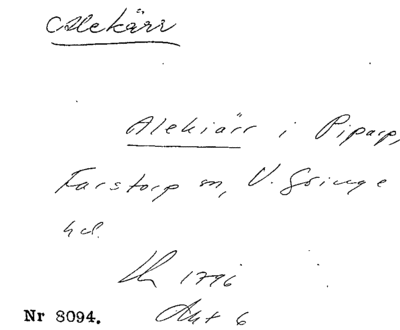 Alekärr
Alekiärr i Piparp,
Farstorp sn, V. Göinge
hd.
Lm 1796
Akt 6
Nr 8094.